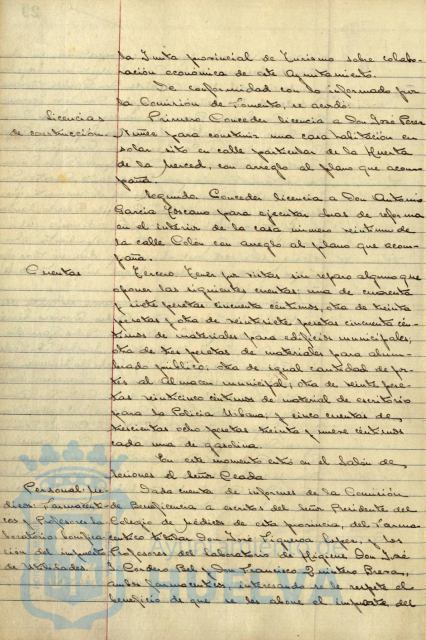 la Junta provincial de Turismo sobre colabo-
ración económica de este Ayuntamiento.
De conformidad con lo informado por
la Comisión de Fomento, se acordó:
licencias
de construcción.
Primero Conceder licencia a Don José Pérez
Núñez para construir una casa habitación en
solar sito en calle particular de la Huerta
de la Merced, con arreglo al plano que acom-
paña.
Segundo Conceder licencia a Don Antonio
García para ejecutar obras de reforma
en el interior de la casa número veintiuno de
la calle Colón con arreglo al plano que acom-
paña.
Cuentas
Tercero Tener por vistas sin reparo alguno que
oponer las siguientes cuentas: una de cuarenta
y siete pesetas cincuenta céntimos, otra de treinta
pesetas y otra de veintisiete pesetas cincuenta cén-
timos de materiales para edificios municipales;
otra de tres pesetas de materiales para alum-
brado público; otra de igual cantidad de
al Almacen municipal; otra de veinte pese-
tas veinticinco céntimos de material de escritorio
para la Policía Urbana; y cinco cuentas de
trescientas ocho pesetas treinta y nueve céntimos
cada una de gasolina.
En este momento entró en el Salón de
sesiones el Señor Ceada
Personal mé-
dico: Farmacéuti-
cos y Profesores la-
boratorio bonifica-
ción del impuesto
de utilidades.
Dada cuenta de informes de la Comisión
de Beneficencia a escritos del Señor Presidente del
Colegio de médicos de esta provincia, del Farma-
céutico titular Don José Figueroa, y los
Profesores del laboratorio de Higiene Don José
Cordero Bel y Don Francisco,
ambos farmacéuticos, interesando se respete el
beneficio de que se les abone el importe, del
HUELVA